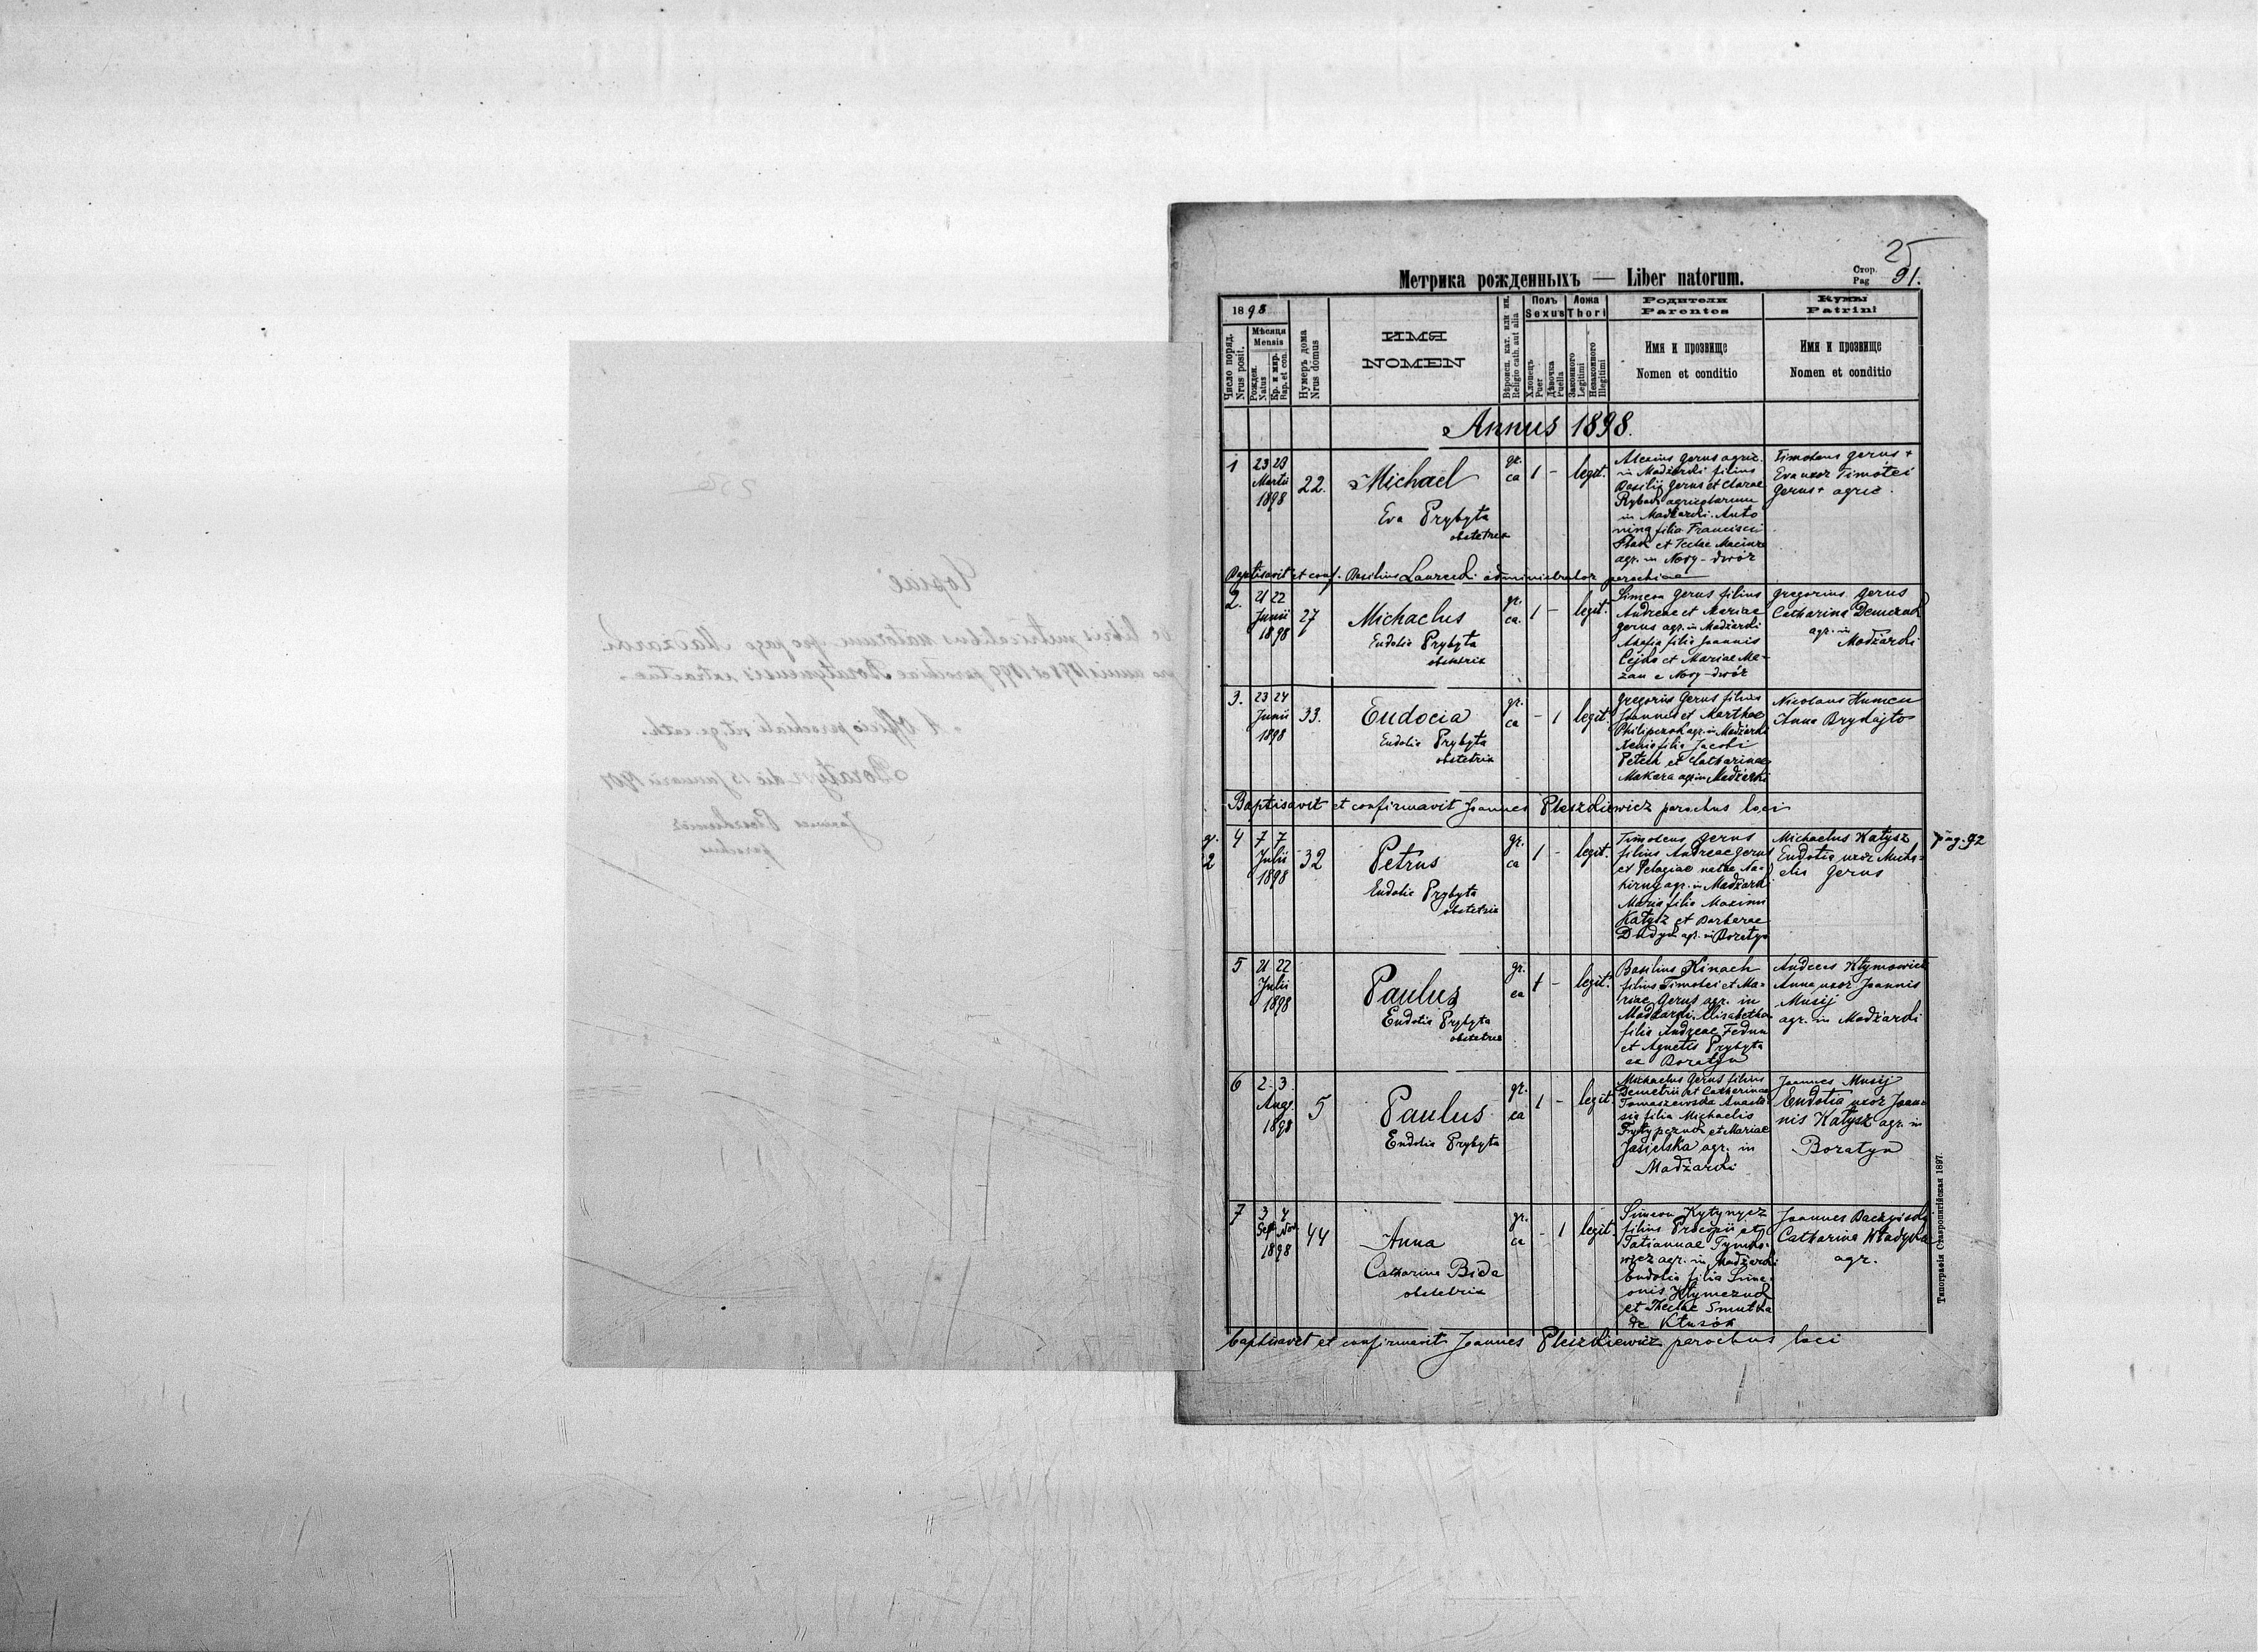 25
Метрика рожденныхъ — Liber natorum.
Стор. Pag 91.
1898
Число поряд. Nrus posit.
Мѣсяця Mensis
Рожден. Natus
Кр. и мир. Bap. et con.
Нумеръ дома Nrus domus
ИМЯ
NOMEN
Вѣроисп. кат. или ин. Religio cath. aut alia
Полъ Sexus
Хлопецъ Puer
Дѣвочка Puella
Ложа Thori
Законного Legitimi
Незаконного Illegitimi
Родители
Parentes
Имя и прозвище
Nomen et conditio
Кумы
Patrini
Имя и прозвище
Nomen et conditio
Annus 1898.
1
23 23
Martii
1898
22.
Michael
Eva Prybyta
obstetrix
gr.
ca
1 -
legit.
Alexius Gerus agric.
in Madżarki filius
Basilii Gerus et Clarae
Rybak agricolarum
in Madżarki. Anto
nina filia Francisci
et Teclae
agr. in Nowy-dwór
Timoteus Gerus +
Eva uxor Timotei
Gerus + agric.
Baptisavit et conf. Basilius administrator parochiae
2.
21 22
Junii
1898
27
Michaelus
Eudotia Prybyta
obstetrix
gr.
ca.
1 -
legit.
Simeon Gerus filius
Andreae et Mariae
Gerus agr. in Madżarki
Agafia filia Joannis
Cejko et Mariae Ma-
zan e Nowy-dwór
Gregorius Gerus
Catharina Demczuk
agr. in
Madżarki
3.
23 24
Junii
1898
33.
Eudocia
Eudotia Prybyta
obstetrix
gr.
ca
- 1
legit.
Gregorius Gerus filius
Joannis et Marthae
Philipczuk agr. in Madżarki
Xenia filia Jacobi
Petech et Catharinae
Makara agr. in Madżarki
Nicolaus Humen
Anna
Baptisavit et confirmavit Joannes Pleszkiewicz parochus loci
4
7 7
Julii
1898
32
Petrus
Eudotia Prybyta
obstetrix
gr.
ca
1 -
legit.
Timoteus Gerus
filius Andreae Gerus
et Pelagiae natae Na-
agr. in Madżarki
Maria filia Maximi
Katysz et Barbarae
agr. in Boratyn
Michaelus Katysz
Eudotia uxor Micha-
elis Gerus
pag. 92
5
21 22
Julii
1898
Paulus
Eudotia Prybyta
obstetrix
gr.
ca
1 -
legit.
Basilius Kinach
filius Timotei et Ma-
riae Gerus agr. in
Madżarki. Elisabetha
filia Andreae Fedun
et Agnetis Prybyta
ex Boratyn
Andreas Kłymowicz
Anna uxor Joannis
Musij
agr. in Madżarki
6
2. 3.
Aug.
1898
5
Paulus
Eudotia Prybyta
gr.
ca
1 -
legit.
Michaelus Gerus filius
Demetrii et Catherinae
Tomaszewska Anasta-
sia filia Michaelis
et Mariae
Jasielska agr. in
Madżarki
Joannes Musij
Eudotia uxor Joan-
nis Katysz agr. in
Boratyn
7
3 4
Sept Nov
1898
44
Anna
Catharina Bida
obstetrix
gr.
ca
- 1
legit.
Simeon Kytynycz
filius Procopii et
Tatiannae Tymko-
wicz agr. in Madżarki
Eudotia filia Sime-
onis Kłymczuk
et Theclae Smutka
de Kłusów
Joannes
Catharina Władyka
agr.
baptisavit et confirmavit Joannes Pleszkiewicz parochus loci
Типографія Ставропигійская 1897.
Copiae
de libris metricalibus natorum pro pago Madżarki
pro annis 1898 et 1899 parochiae Boratynensis extractae.
Officio parochiali rit. gr. cath.
Boratyn die 15 Januarii 1901
Joannes Pleszkiewicz
parochus